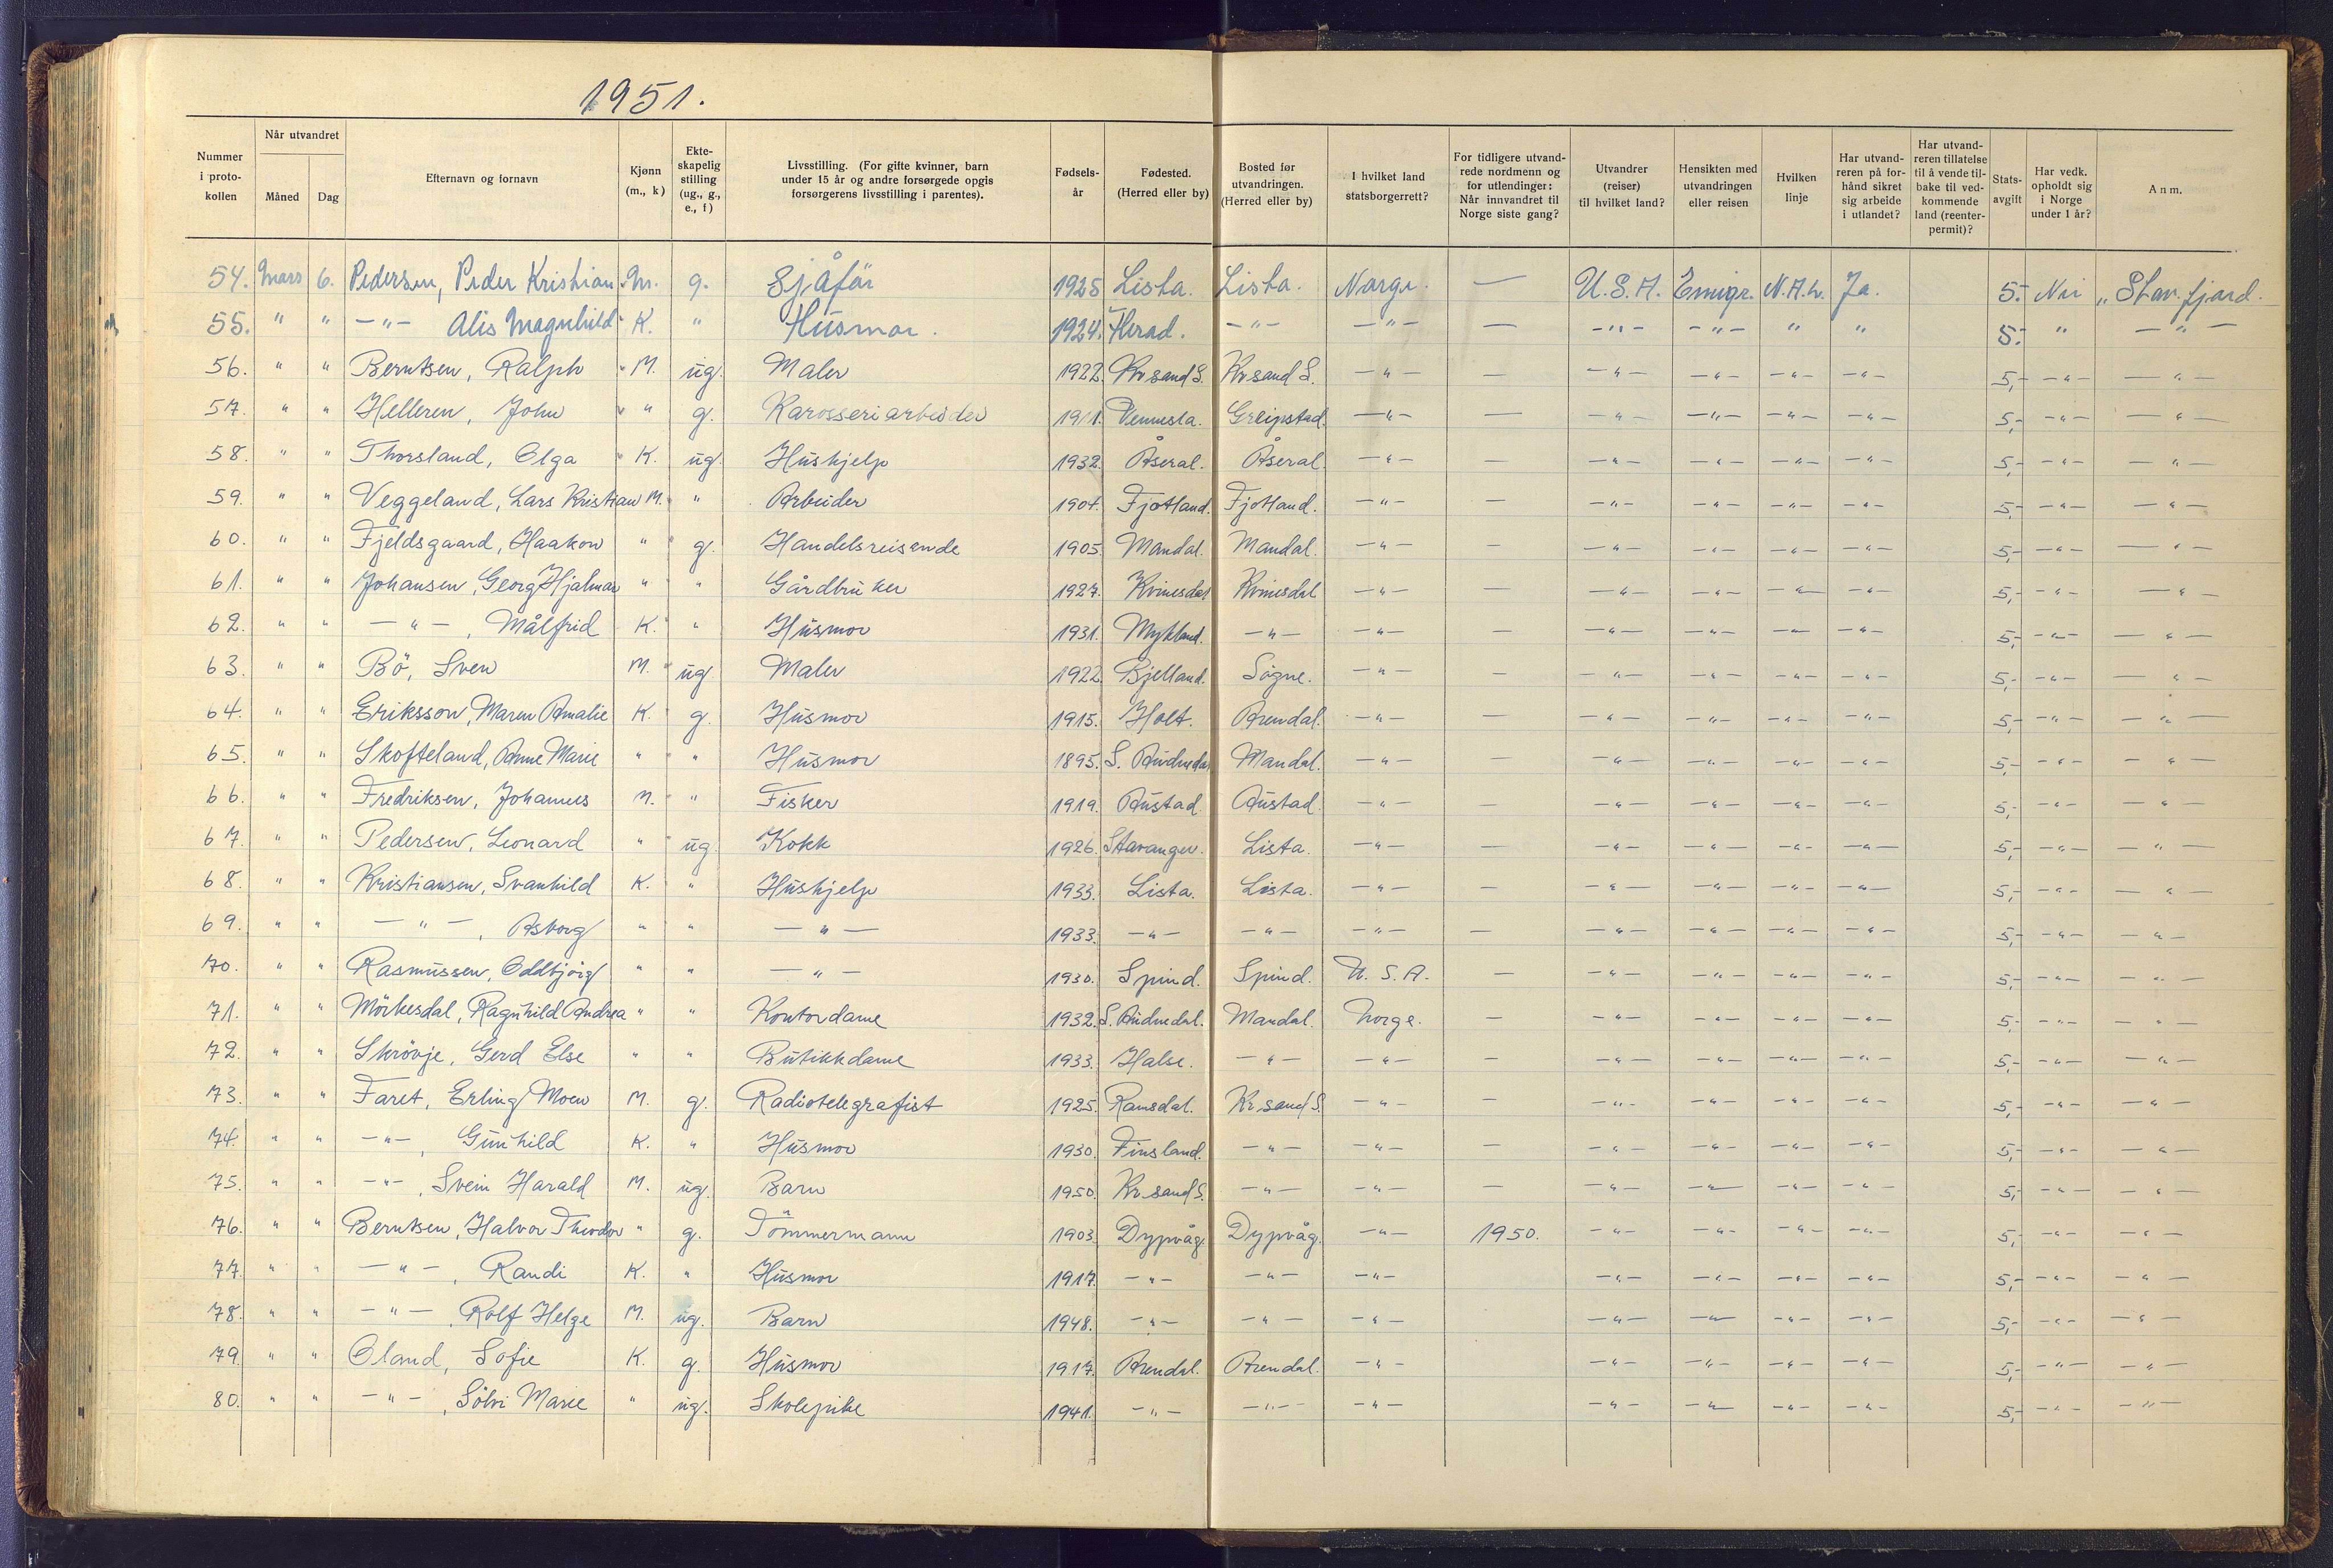 1951.
Nummer i proto- kollen | Når utvandret Måned Dag | Efternavn og fornavn | Kjønn (m., k) | Ekte- skapelig stilling (ug., g., e., f) | Livsstilling. (For gifte kvinner, barn under 15 år og andre forsørgede opgis forsørgerens livsstilling i parentes). | Fødsels- år | Fødested. (Herred eller by) | Bosted før utvandringen. (Herred eller by) | I hvilket land statsborgerrett? | For tidligere utvand- rede nordmenn og for utlendinger: Når innvandret til Norge siste gang? | Utvandrer (reiser) til hvilket land? | Hensikten med utvandringen eller reisen | Hvilken linje | Har utvand- reren på for- hånd sikret sig arbeide i utlandet? | Har utvand- reren tillatelse til å vende til- bake til ved- kommende land (reenter- permit)? | Stats- avgift | Har vedk. opholdt sig i Norge under 1 år? | Anm.
54. Mars 6. Pedersen, Peder Kristian M. g. Sjåfør 1925 Lista. Lista. Norge. — U.S.A. Emigr. N.A.L. Ja. 5.- Nei „Stav.fjord.
55. " " —"— Alis Magnhild K. " Husmor. 1924. Herad. —"— —"— — —"— —"— " " 5.- " —"—
56. " " Berntsen, Ralph M. ug. Maler 1922. Kr.sand S. Kr.sand S. —"— — —"— —"— —"— —"— 5,- —"— —"—
57. " " Helleren, John " g. Karosseriarbeider 1911. Vennesla. Greipstad. —"— — —"— —"— —"— —"— 5,- —"— —"—
58. " " Thorsland, Olga K. ug. Hushjelp 1932. Åseral. Åseral. —"— — —"— —"— —"— —"— 5,- —"— —"—
59. " " Veggeland, Lars Kristian M. " Arbeider 1904. Fjotland. Fjotland. —"— — —"— —"— —"— —"— 5,- —"— —"—
60. " " Fjeldsgaard, Haakon " g. Handelsreisende 1905. Mandal. Mandal. —"— — —"— —"— —"— —"— 5,- —"— —"—
61. " " Johansen, Georg Hjalmar " " Gårdbruker 1927. Kvinesdal Kvinesdal —"— — —"— —"— —"— —"— 5,- —"— —"—
62. " " —"—, Målfrid K. " Husmor 1931. Mykland. —"— —"— — —"— —"— —"— —"— 5,- —"— —"—
63. " " Bö, Sven M. ug. Maler 1922 Bjelland. Sögne. —"— — —"— —"— —"— —"— 5,- —"— —"—
64. " " Eriksson, Maren Amalie K. g. Husmor 1915. Holt. Arendal. —"— — —"— —"— —"— —"— 5,- —"— —"—
65. " " Skofteland, Anne Marie " " Husmor 1895. S. Audnedal Mandal. —"— — —"— —"— —"— —"— 5,- —"— —"—
66. " " Fredriksen, Johannes M. " Fisker 1919. Austad. Austad. —"— — —"— —"— —"— —"— 5,- —"— —"—
67. " " Pedersen, Leonard " ug. Kokk 1926. Stavanger. Lista. —"— — —"— —"— —"— —"— 5,- —"— —"—
68. " " Kristiansen, Svanhild K. " Hushjelp 1933. Lista. Lista. —"— — —"— —"— —"— —"— 5,- —"— —"—
69. " " —"—, Asborg " " —"— 1933. —"— —"— —"— — —"— —"— —"— —"— 5,- —"— —"—
70. " " Rasmussen, Oddbjörg " " —"— 1930. Spind. Spind. U.S.A. — —"— —"— —"— —"— 5,- —"— —"—
71. " " Mörkesdal, Ragnhild Andrea " " Kontordame 1932. S. Audnedal. Mandal. Norge. — —"— —"— —"— —"— 5,- —"— —"—
72. " " Skrövje, Gerd Else " " Butikkdame 1933. Halse. —"— —"— — —"— —"— —"— —"— 5,- —"— —"—
73. " " Faret, Erling Moen M. g. Radiotelegrafist 1925. Ramsdal. Kr.sand S. —"— — —"— —"— —"— —"— 5,- —"— —"—
74. " " —"—, Gunhild K. " Husmor 1930. Finsland. —"— —"— — —"— —"— —"— —"— 5,- —"— —"—
75. " " —"—, Svein Harald M. ug. Barn 1950. Kr.sand S. —"— —"— — —"— —"— —"— —"— 5,- —"— —"—
76. " " Berntsen, Halvor Theodor " g. Tömmermann 1903. Dypvåg. Dypvåg. —"— 1950. —"— —"— —"— —"— 5,- —"— —"—
77. " " —"—, Randi K. " Husmor 1917. —"— —"— —"— —"— —"— —"— —"— 5,- —"— —"—
78. " " —"—, Rolf Helge M. ug. Barn 1948. —"— —"— —"— —"— —"— —"— —"— 5,- —"— —"—
79. " " Oland, Sofie K. g. Husmor 1917. Arendal. Arendal. —"— —"— —"— —"— —"— 5,- —"— —"—
80. " " —"—, Sölvi Marie " ug. Skolepike 1941. —"— —"— —"— —"— —"— —"— —"— 5,- —"— —"—